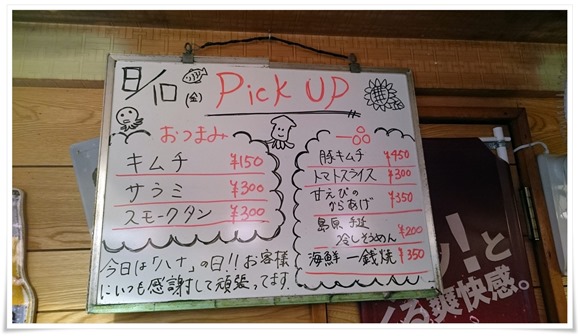 8/10(金)
Pick UP
おつまみ
キムチ ¥150
サラミ ¥300
スモークタン ¥300
一品
豚キムチ ¥450
トマトスライス ¥300
甘えびの
からあげ ¥350
島原 手延
冷しそうめん ¥200
海鮮 一銭焼 ¥350
今日は「ハナ」の日!!お客様
にいつも感謝して頑張ってます。
!と
る爽快感。